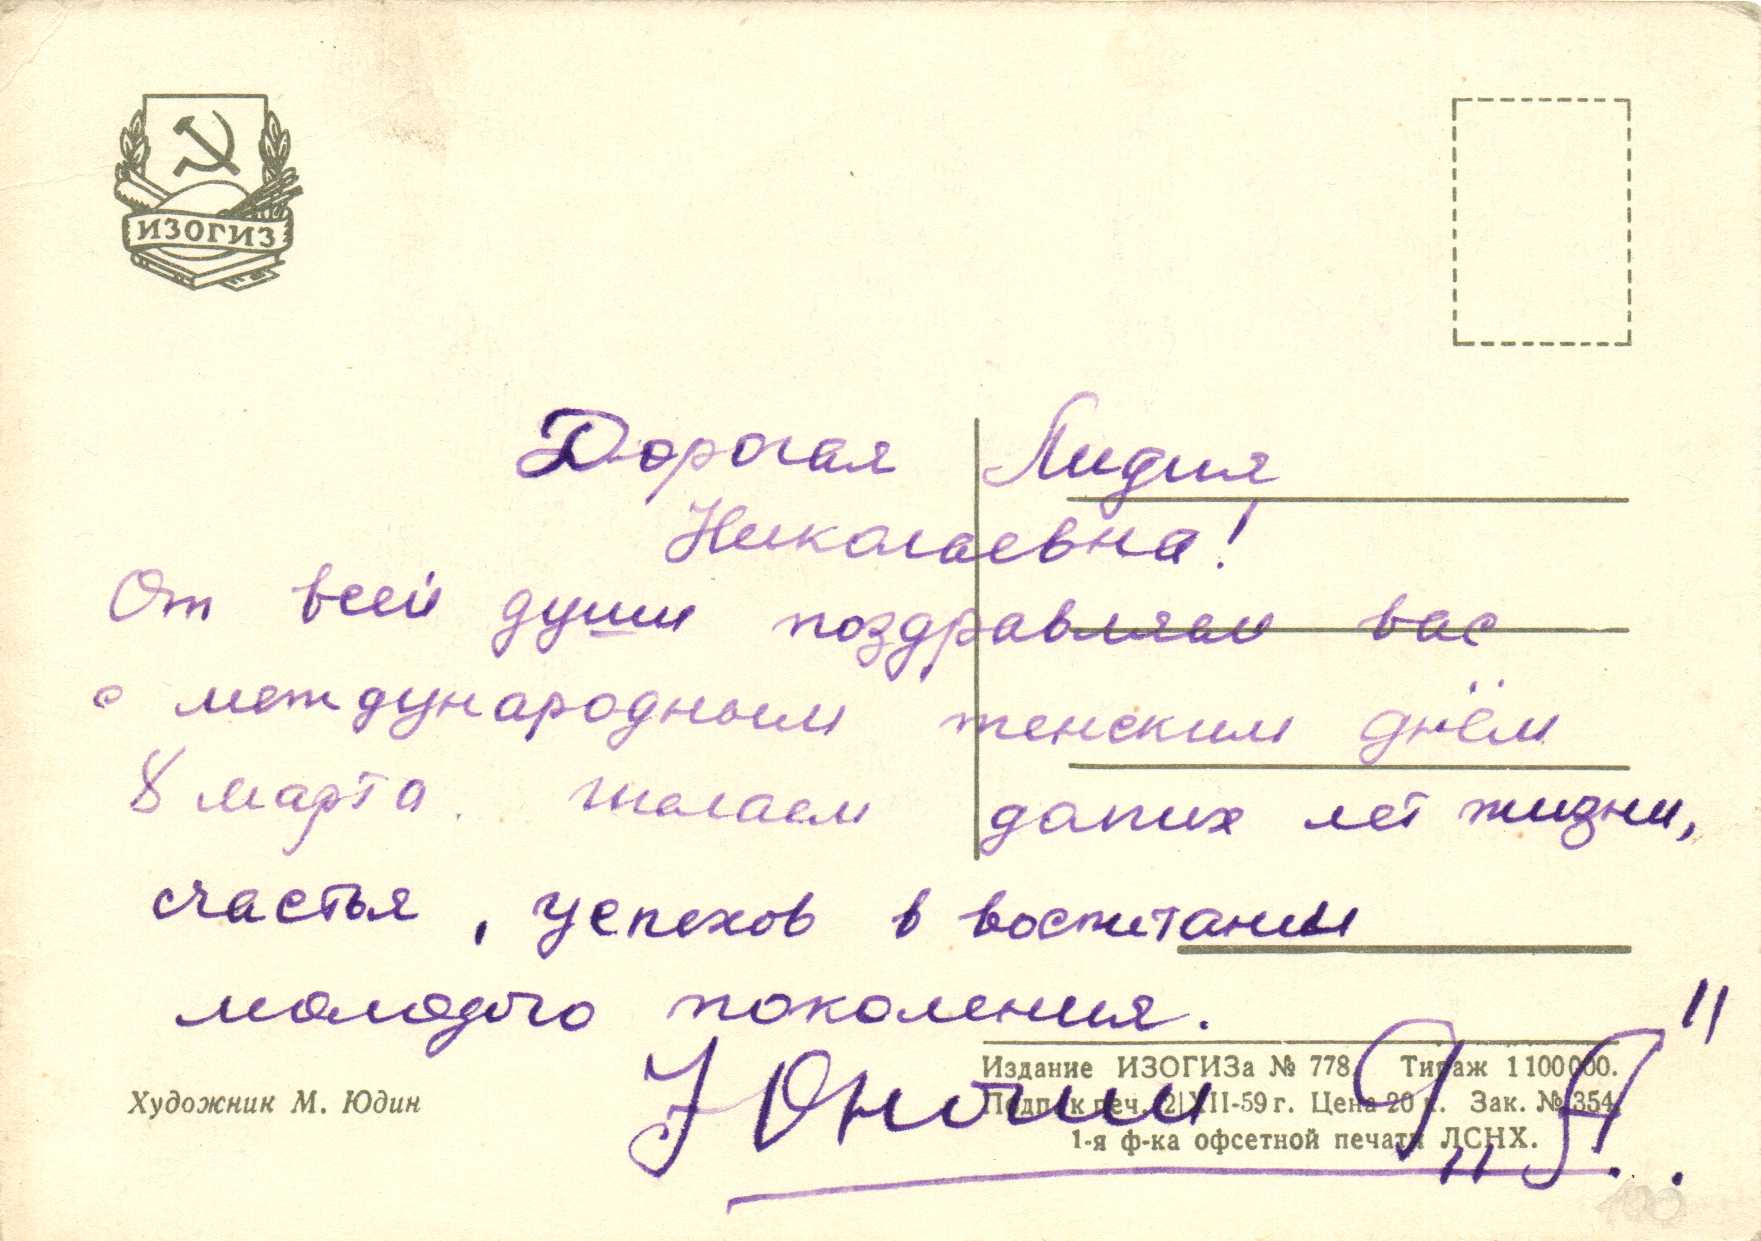 ИЗОГИЗ
Дорогая Лидия
Николаевна!
От всей души поздравляем вас
с международным женским днём
8 марта. Желаем долгих лет жизни,
счастья, успехов в воспитании
молодого поколения.
Юноши 9 „А"
Художник М. Юдин
Издание ИЗОГИЗа № 778. Тираж 1 100 000.
Подп. к печ. 2|XII-59 г. Цена 20 к. Зак. № 354.
1-я ф-ка офсетной печати ЛСНХ.
100